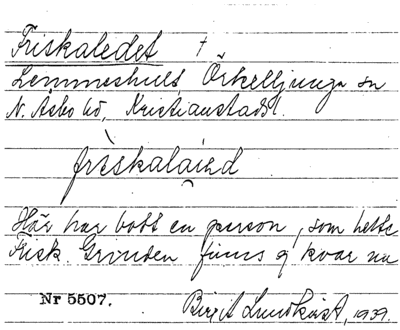 Friskaledet †
Lemmeshults Örkelljunga sn
N. Åsbo hd, Kristianstads l.
frìskalaiəd
Här har bott en person, som hette
Frisk. Grunden finns ej kvar nu
Nr 5507.
Birgit Lundkvist, 1939.